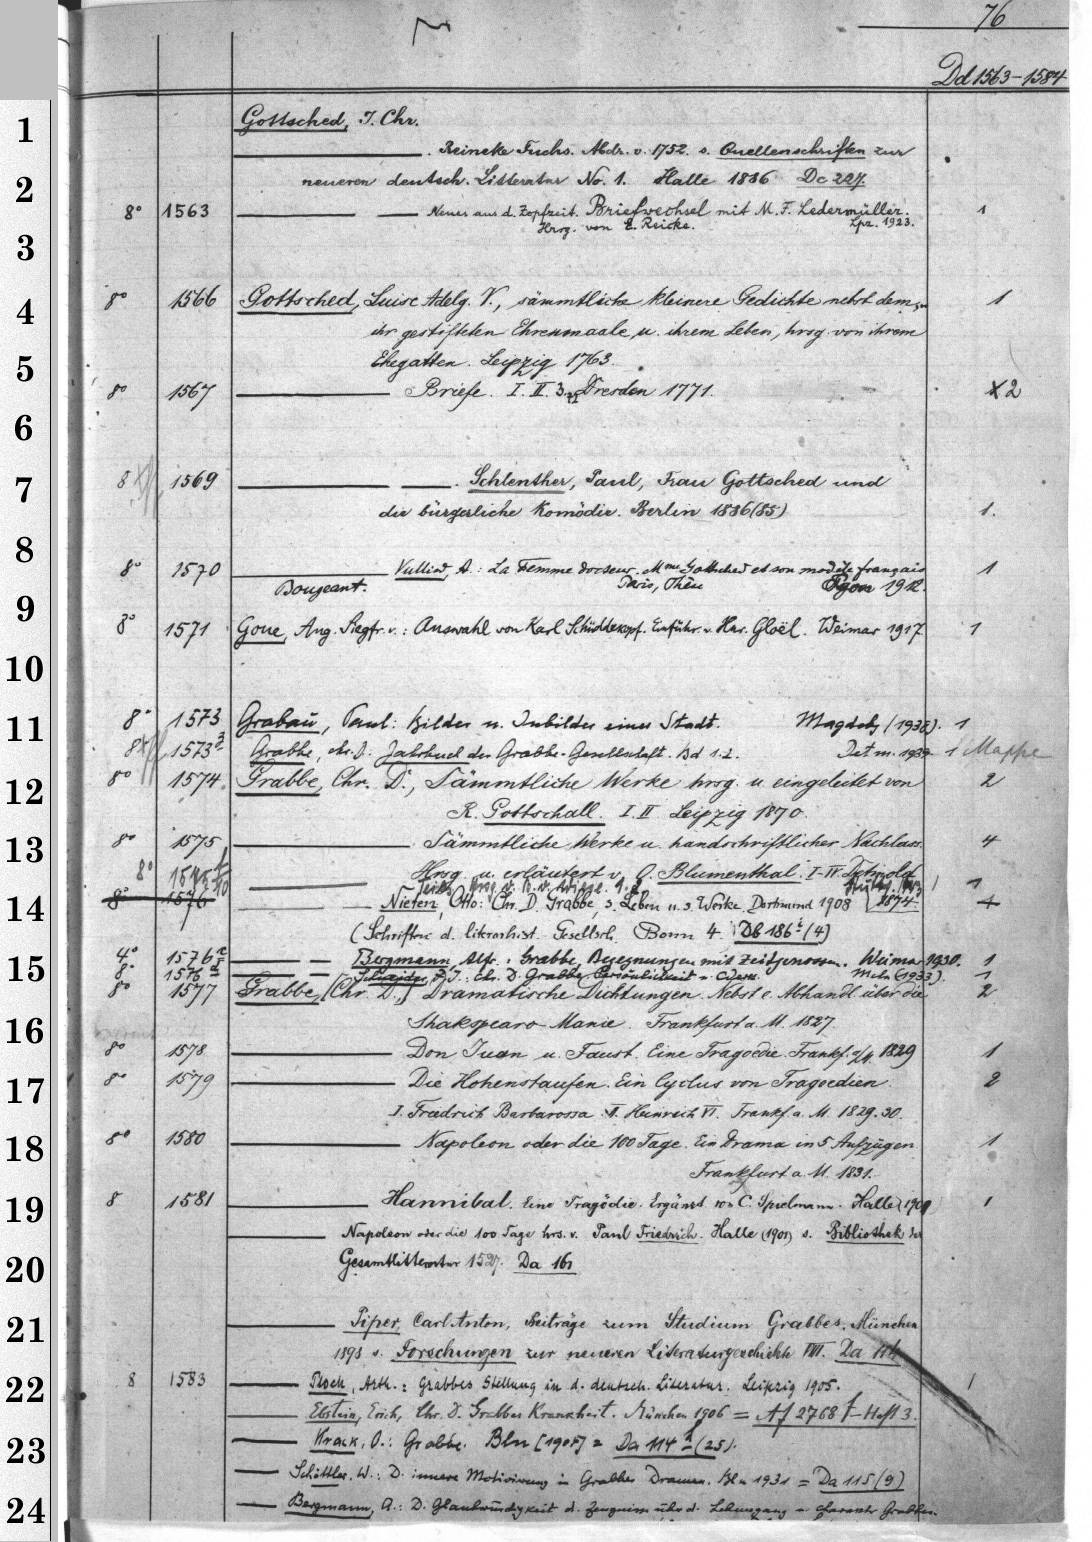 76
Dd 1563-1584
1
Gottsched, J. Chr.
. Reineke Fuchs. Abdr. v. 1752. s. Quellenschriften zur
2
neueren deutsch. Litteratur No. 1. Halle 1886 Dc 227.
8° 1563 Neues aus d. Zopfzeit. Briefwechsel mit M. F. Ledermüller. 1
Hrsg. von E. Reicke. Lpz. 1923.
3
4
8° 1566 Gottsched, Luise Adelg. V., sämmtliche kleinere Gedichte nebst dem, 1
ihr gestifteten Ehrenmaale u. ihrem Leben, hrsg. von ihrem
5
Ehegatten. Leipzig 1763.
8° 1567 Briefe. I. II. 3. Dresden 1771. x2
6
7
8 1569 . Schlenther, Paul, Frau Gottsched und
die bürgerliche Komödie. Berlin 1886(85) 1.
8
8° 1570 Vulliod, A.: La Femme docteur. Mme Gottsched et son modèle français 1
Bougeant. Paris, Lyon 1912.
9
8° 1571 Goue, Aug. Siegfr. v.: Auswahl von Karl Schüddekopf. Einführ. v. Hnr. Gloël. Weimar 1917 1
10
11
8° 1573 Grabau, Paul: Bilder u. Inbilder einer Stadt. Magdeb (1938). 1
8 1573 Grabbe, Chr. D. Jahrbuch der Grabbe-Gesellschaft. Bd 1.2. Detm. 1939 1 Mappe
12
8° 1574 Grabbe, Chr. D., Sämmtliche Werke hrsg. u eingeleitet von 2
R. Gottschall. I. II Leipzig 1870.
13
8° 1575 Sämmtliche Werke u. handschriftlicher Nachlass. 4
Hrsg. u. erläutert v. O. Blumenthal. I-IV Detmold
8° 1
14
8° 1576 Nieten, Otto: Chr. D. Grabbe, s. Leben u. s. Werke. Dortmund 1908 1874. 1
(Schriften d. literarhist. Gesellsch. Bonn 4. Db 186 (4)
15
4° 1576 Bergmann, Alfr.: Grabbe, Begegnungen mit Zeitgenossen. Weimar 1930. 1
8° 1576 Schneider, F. J.: Chr. D. Grabbe, Persönlichkeit u. Mchn (1933). 1
8° 1577 Grabbe, [Chr. D.,] Dramatische Dichtungen. Nebst e. Abhandl über die 2
16
Shakspearo-Manie. Frankfurt a. M. 1827.
8° 1578 Don Juan u. Faust. Eine Tragoedie. Frankf. a/M. 1829 1
17
8° 1579 Die Hohenstaufen. Ein Cyclus von Tragoedien. 2
I. Friedrich Barbarossa II. Heinrich VI. Frankf. a. M. 1829. 30.
18
8° 1580 Napoleon oder die 100 Tage. Ein Drama in 5 Aufzügen. 1
Frankfurt a. M. 1831.
19
8 1581 Hannibal. Eine Tragödie. Ergänzt von C. Spielmann. Halle (1901) 1
Napoleon oder die 100 Tage hrs. v. Paul Friedrich. Halle (1901) s. Bibliothek der
20
Gesamtlitteratur 1527. Da 16
21
Piper, Carl Anton, Beiträge zum Studium Grabbes. München
1898 s. Forschungen zur neueren Literaturgeschichte VIII. Da
22
8 1583 Ploch, Arth.: Grabbes Stellung in d. deutsch. Literatur. Leipzig 1905. 1
Ebstein, Erich, Chr. D. Grabbes Krankheit. München 1906 = Af 2768 f - Heft 3.
23
Krack, O.: Grabbe. Bln [1905] = Da 114 (25).
Schöttler, W.: D. innere Motivierung in Grabbes Dramen. Bln 1931 = Da 115 (9)
24
Bergmann, A.: D. Glaubwürdigkeit d. Zeugnisse über d. Lebensgang u. Charakter Grabbes.